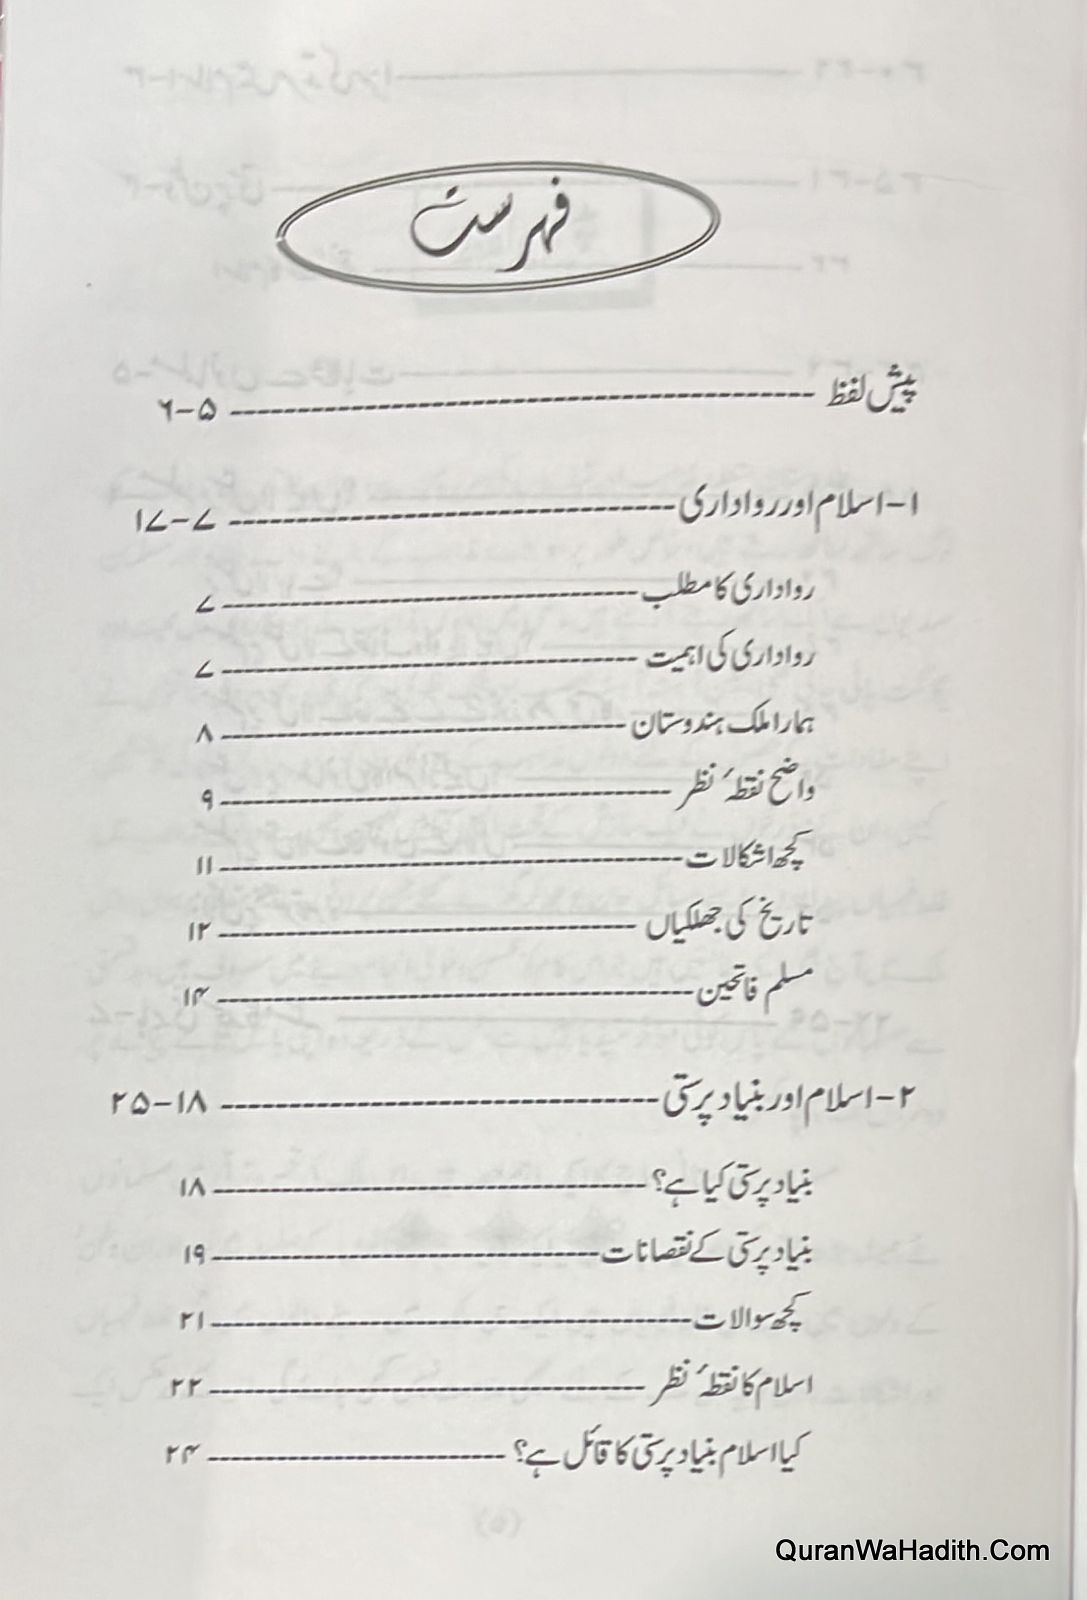 فہرست
پیش لفظ ۵-۶
۱- اسلام اور رواداری ۷-۱۷
رواداری کا مطلب ۷
رواداری کی اہمیت ۷
ہمارا ملک ہندوستان ۸
واضح نقطۂ نظر ۹
کچھ اشکالات ۱۱
تاریخ کی جھلکیاں ۱۲
مسلم فاتحین ۱۴
۲- اسلام اور بنیاد پرستی ۱۸-۲۵
بنیاد پرستی کیا ہے؟ ۱۸
بنیاد پرستی کے نقصانات ۱۹
کچھ سوالات ۲۱
اسلام کا نقطۂ نظر ۲۲
کیا اسلام بنیاد پرستی کا قائل ہے؟ ۲۴
QuranWaHadith.Com